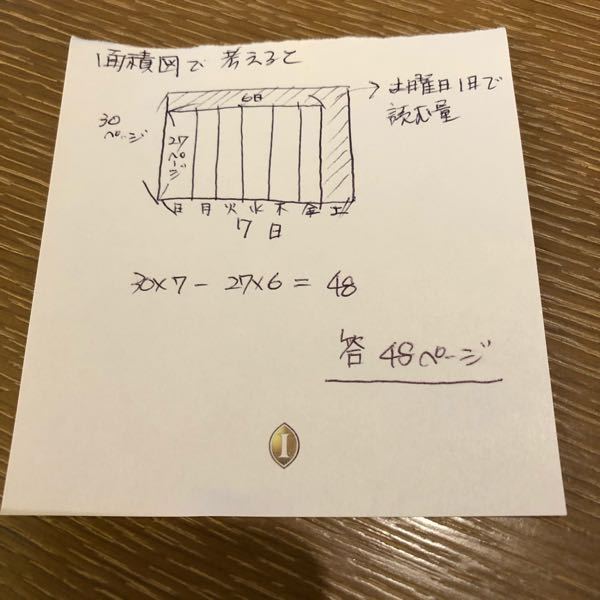 面積図で考えると
6日
→土曜日1日で
読む量
30
ページ
27
ページ
日 月 火 水 木 金 土
7日
30×7 - 27×6 = 48
答 48ページ
I